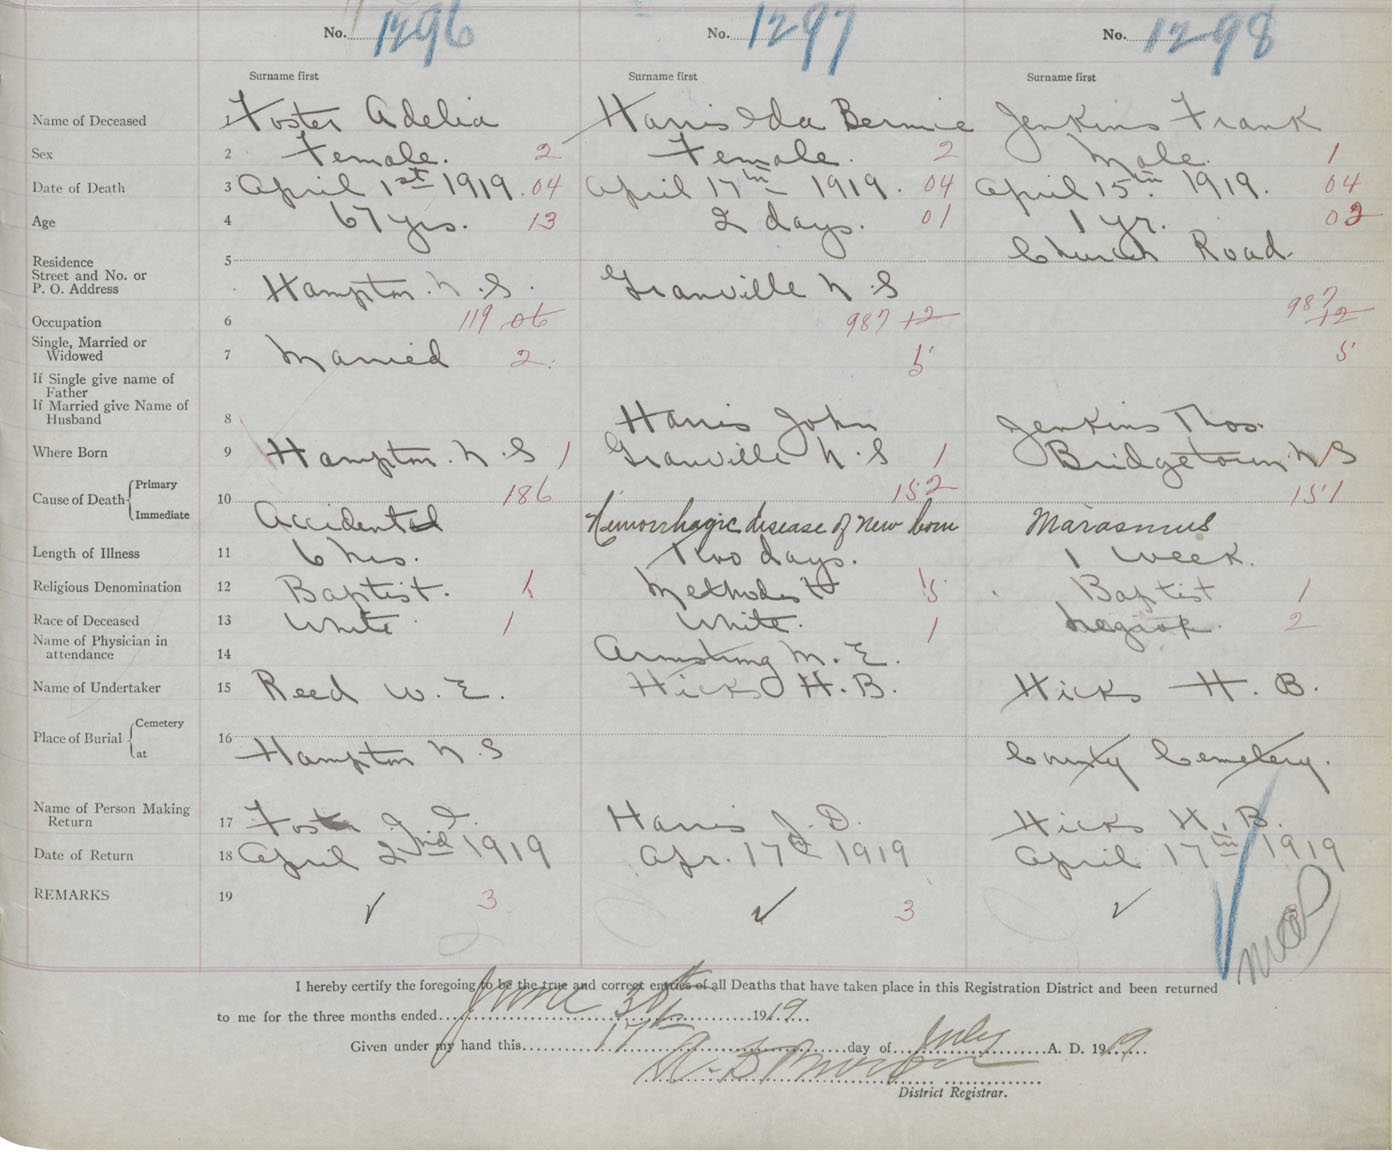 No. 1296 No. 1297 No. 1298
Surname first Surname first Surname first
Name of Deceased 1 Foster Adelia Harris Ida Bernie Jenkins Frank
Sex 2 Female. 2 Female. 2 Male. 1
Date of Death 3 April 1st 1919. 04 April 17th 1919. 04 April 15th 1919. 04
Age 4 67 yrs. 13 2 days. 01 1 yr. 02
Residence 5 Church Road.
Street and No. or
P. O. Address Hampton. N.S. Granville N.S
Occupation 6 119 06 987 12 987 12
Single, Married or
Widowed 7 Married 2. 5 5
If Single give name of
Father
If Married give Name of
Husband 8 Harris John Jenkins Thos.
Where Born 9 Hampton. N.S 1 Granville N.S 1 Bridgetown. N S
Cause of Death Primary
10 186 152 151
Immediate Accidental Hemorrhagic disease of new born Marasmus
Length of Illness 11 6 hrs. Two days. 1 week.
Religious Denomination 12 Baptist. 1 Methodist 5 Baptist 1
Race of Deceased 13 White. 1 White. 1 2
Name of Physician in
attendance 14 Armstrong M. E.
Name of Undertaker 15 Reed W. E. Hicks H. B. Hicks H. B.
Place of Burial Cemetery
16
at Hampton N.S County Cemetery.
Name of Person Making
Return 17 Harris J. D. Hicks H. B.
Date of Return 18 April 2nd 1919 Apr. 17th 1919 April 17th 1919
REMARKS 19 ✓ 3 ✓ 3 ✓ 3
I hereby certify the foregoing to be the true and correct entries of all Deaths that have taken place in this Registration District and been returned
to me for the three months ended June 30th 1919
Given under my hand this 17th day of July A. D. 1919
District Registrar.